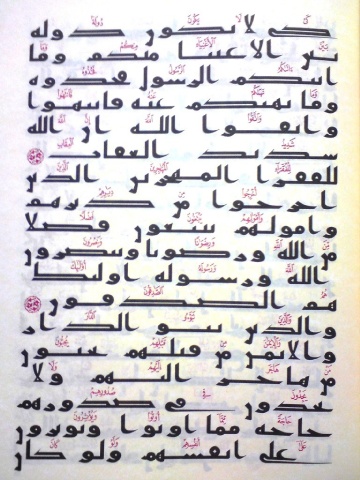 كى لا يكون دوله
بين الاغنيا منكم وما
اتيكم الرسول فخذوه
وما نهيكم عنه فانتهوا
واتقوا الله ان الله
شديد العقاب
للفقرا المهجرين الذين
اخرجوا من ديرهم
وامولهم يبتغون فضلا
من الله ورضونا وينصرون
الله ورسوله اوليك
هم الصدقون
والذين تبوو الدار
والايمن من قبلهم يحبون
من هاجر اليهم ولا
يجدون في صدورهم
حاجه مما اوتوا ويوثرون
على انفسهم ولو كان